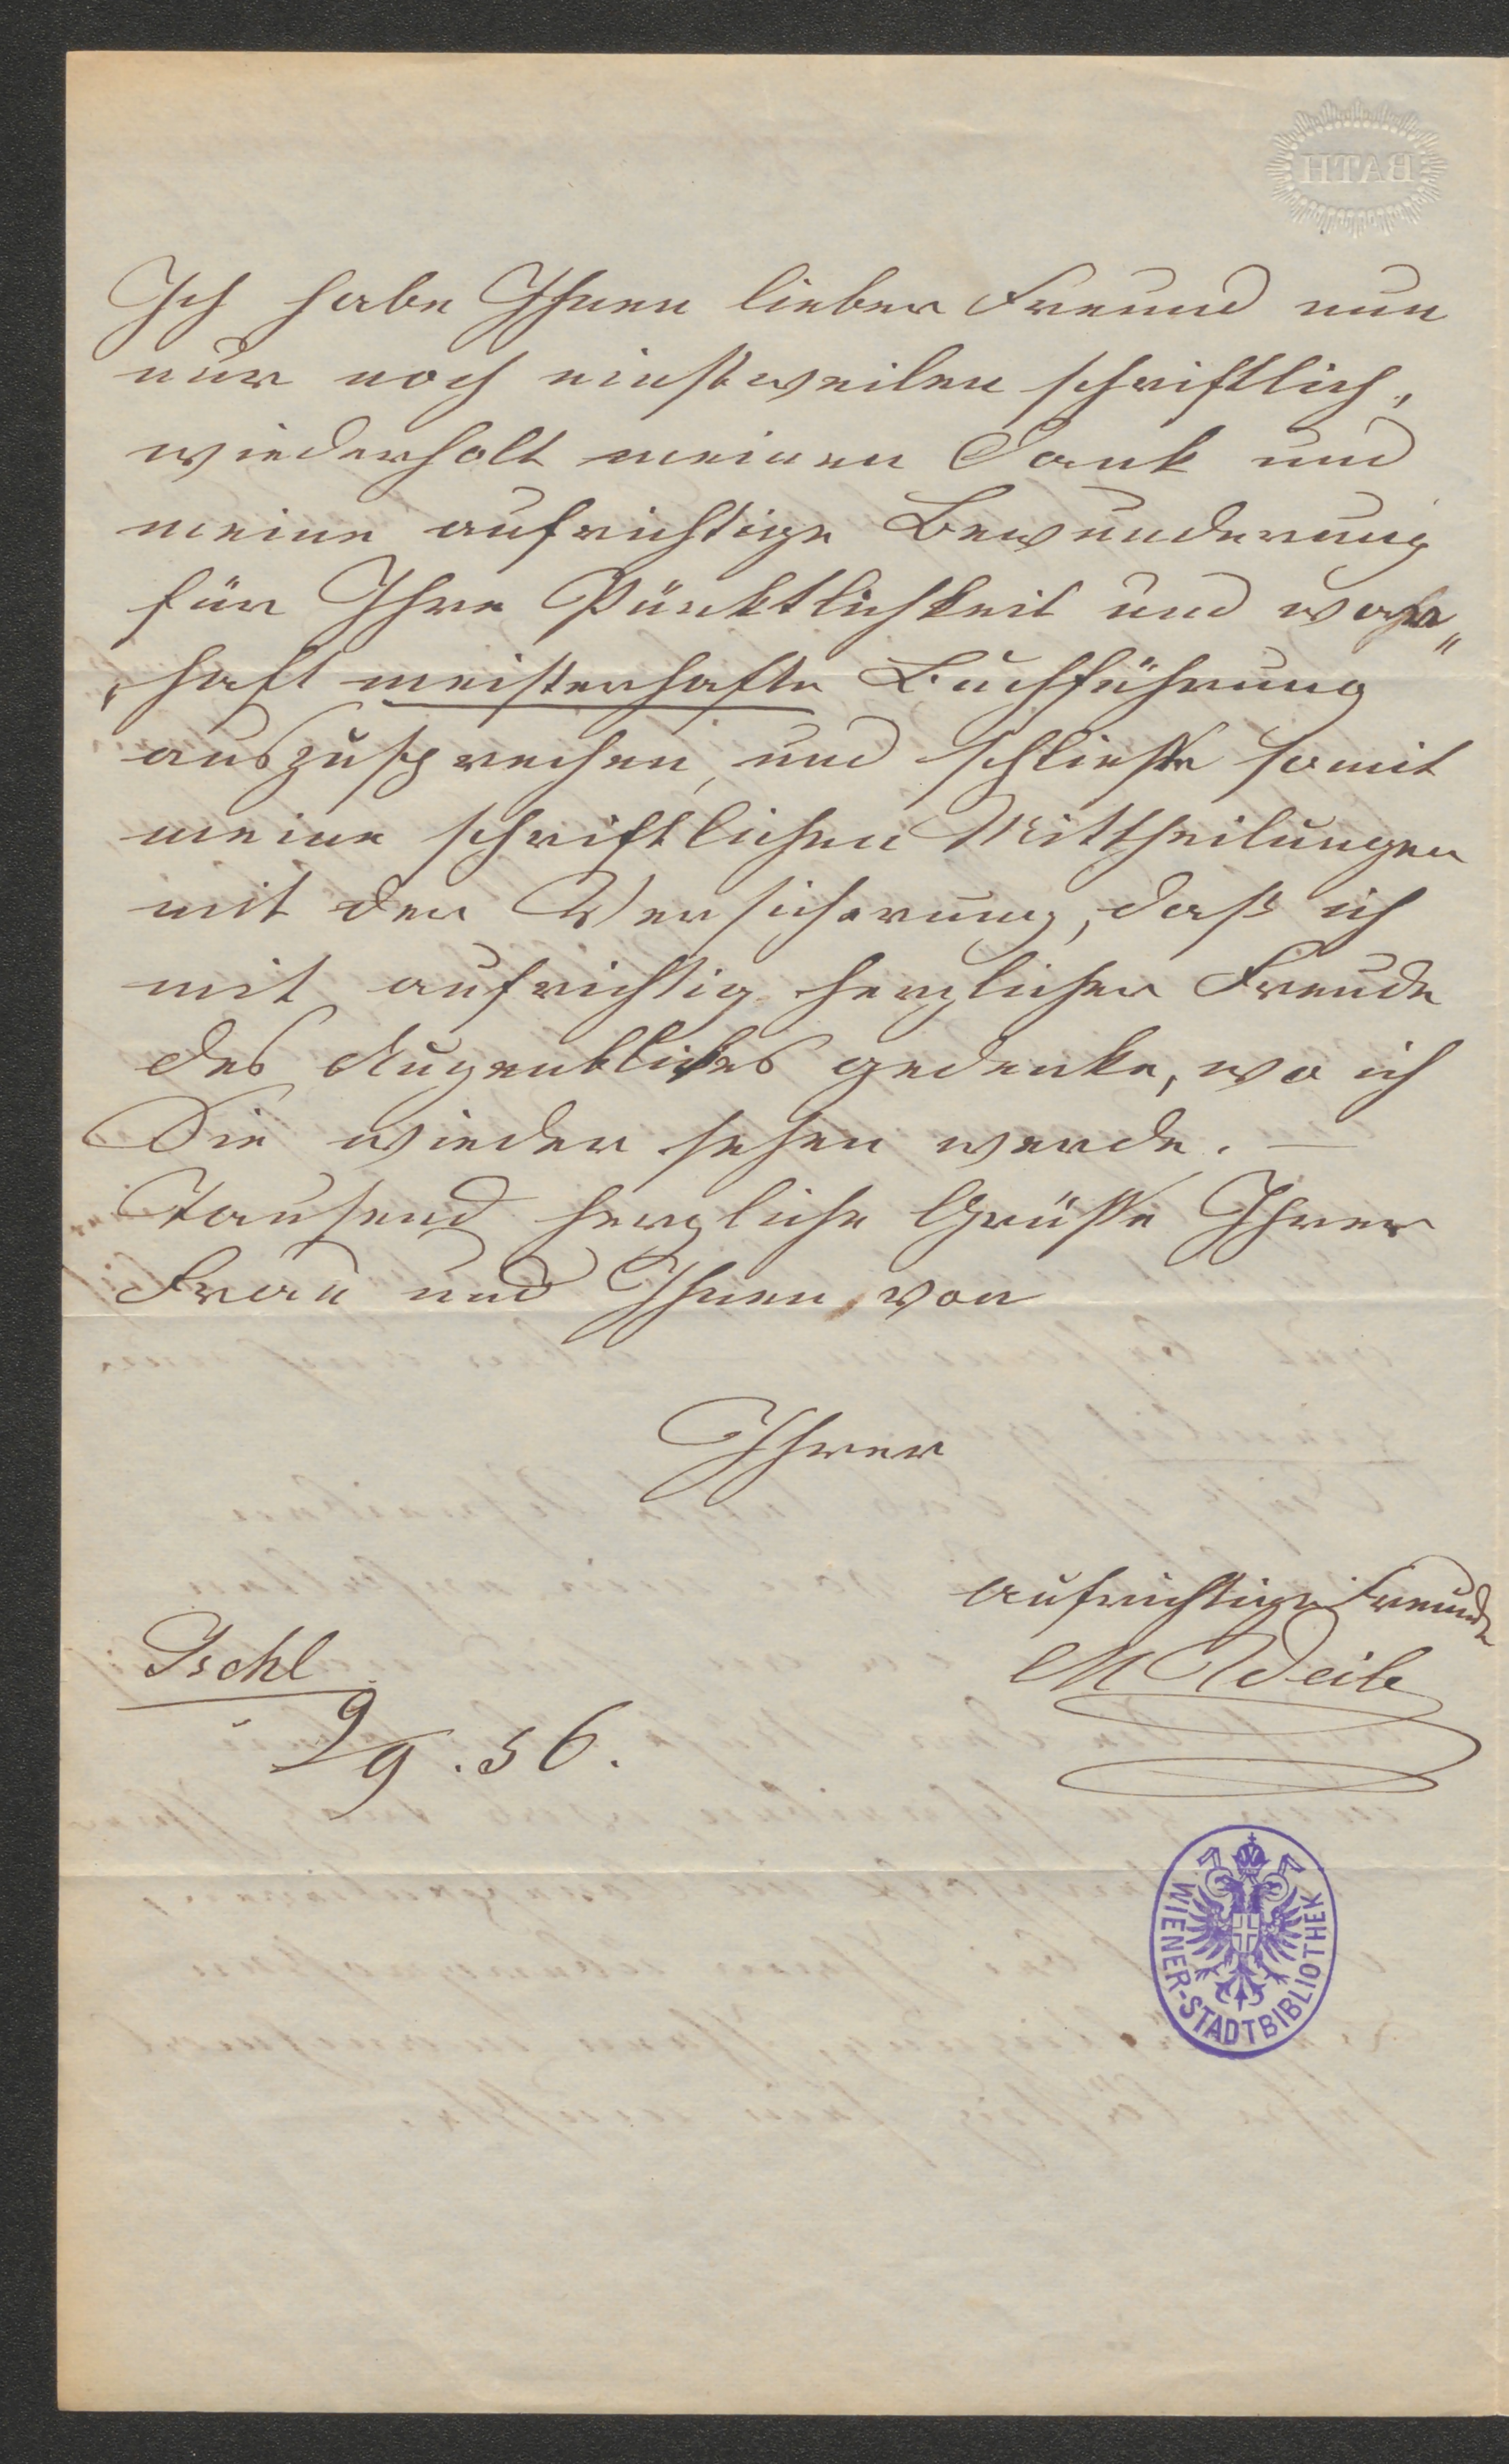 BATH
Ich habe Ihnen lieber Freund nun
nur noch einstweilen schriftlich,
wiederholt meinen Dank und
meine aufrichtige Bewunderung
für Ihre Pünktlichkeit und wahr„
„haft meisterhafte Buchführung
auszusprechen, und schließe somit
meine schriftlichen Mittheilungen
mit der Versicherung, daß ich
mit aufrichtig herzlicher Freude
des Augenblickes gedenke, wo ich
Sie wieder sehen werde. —
Tausend herzliche Grüße Ihrer
Frau und Ihnen, von
Ihrer
aufrichtigen Freunde
M Weile
Ischl
9/9. 56.
WIENER-STADTBIBLIOTHEK